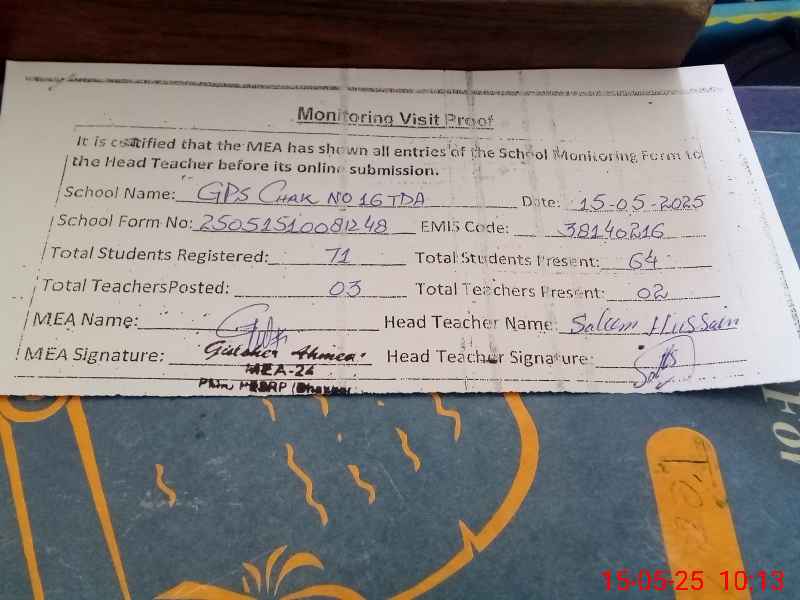 Monitoring Visit Proof
It is certified that the MEA has shown all entries of the School Monitoring Form to
the Head Teacher before its online submission.
School Name: GPS CHAK NO 16 TDA Date: 15-05-2025
School Form No: 25051510081248 EMIS Code: 38140216
Total Students Registered: 71 Total Students Present: 64
Total TeachersPosted: 03 Total Teachers Present: 02
MEA Name: Head Teacher Name: Salum Hussain
MEA Signature: Gulsher Ahmed Head Teacher Signature:
MEA-24
For
15-05-25 10:13